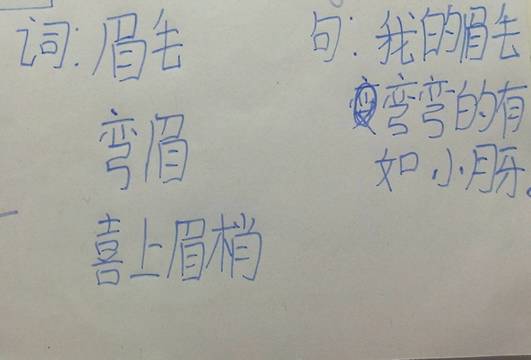 词:眉毛
弯眉
喜上眉梢
句:我的眉毛
弯弯的有
如小月牙。